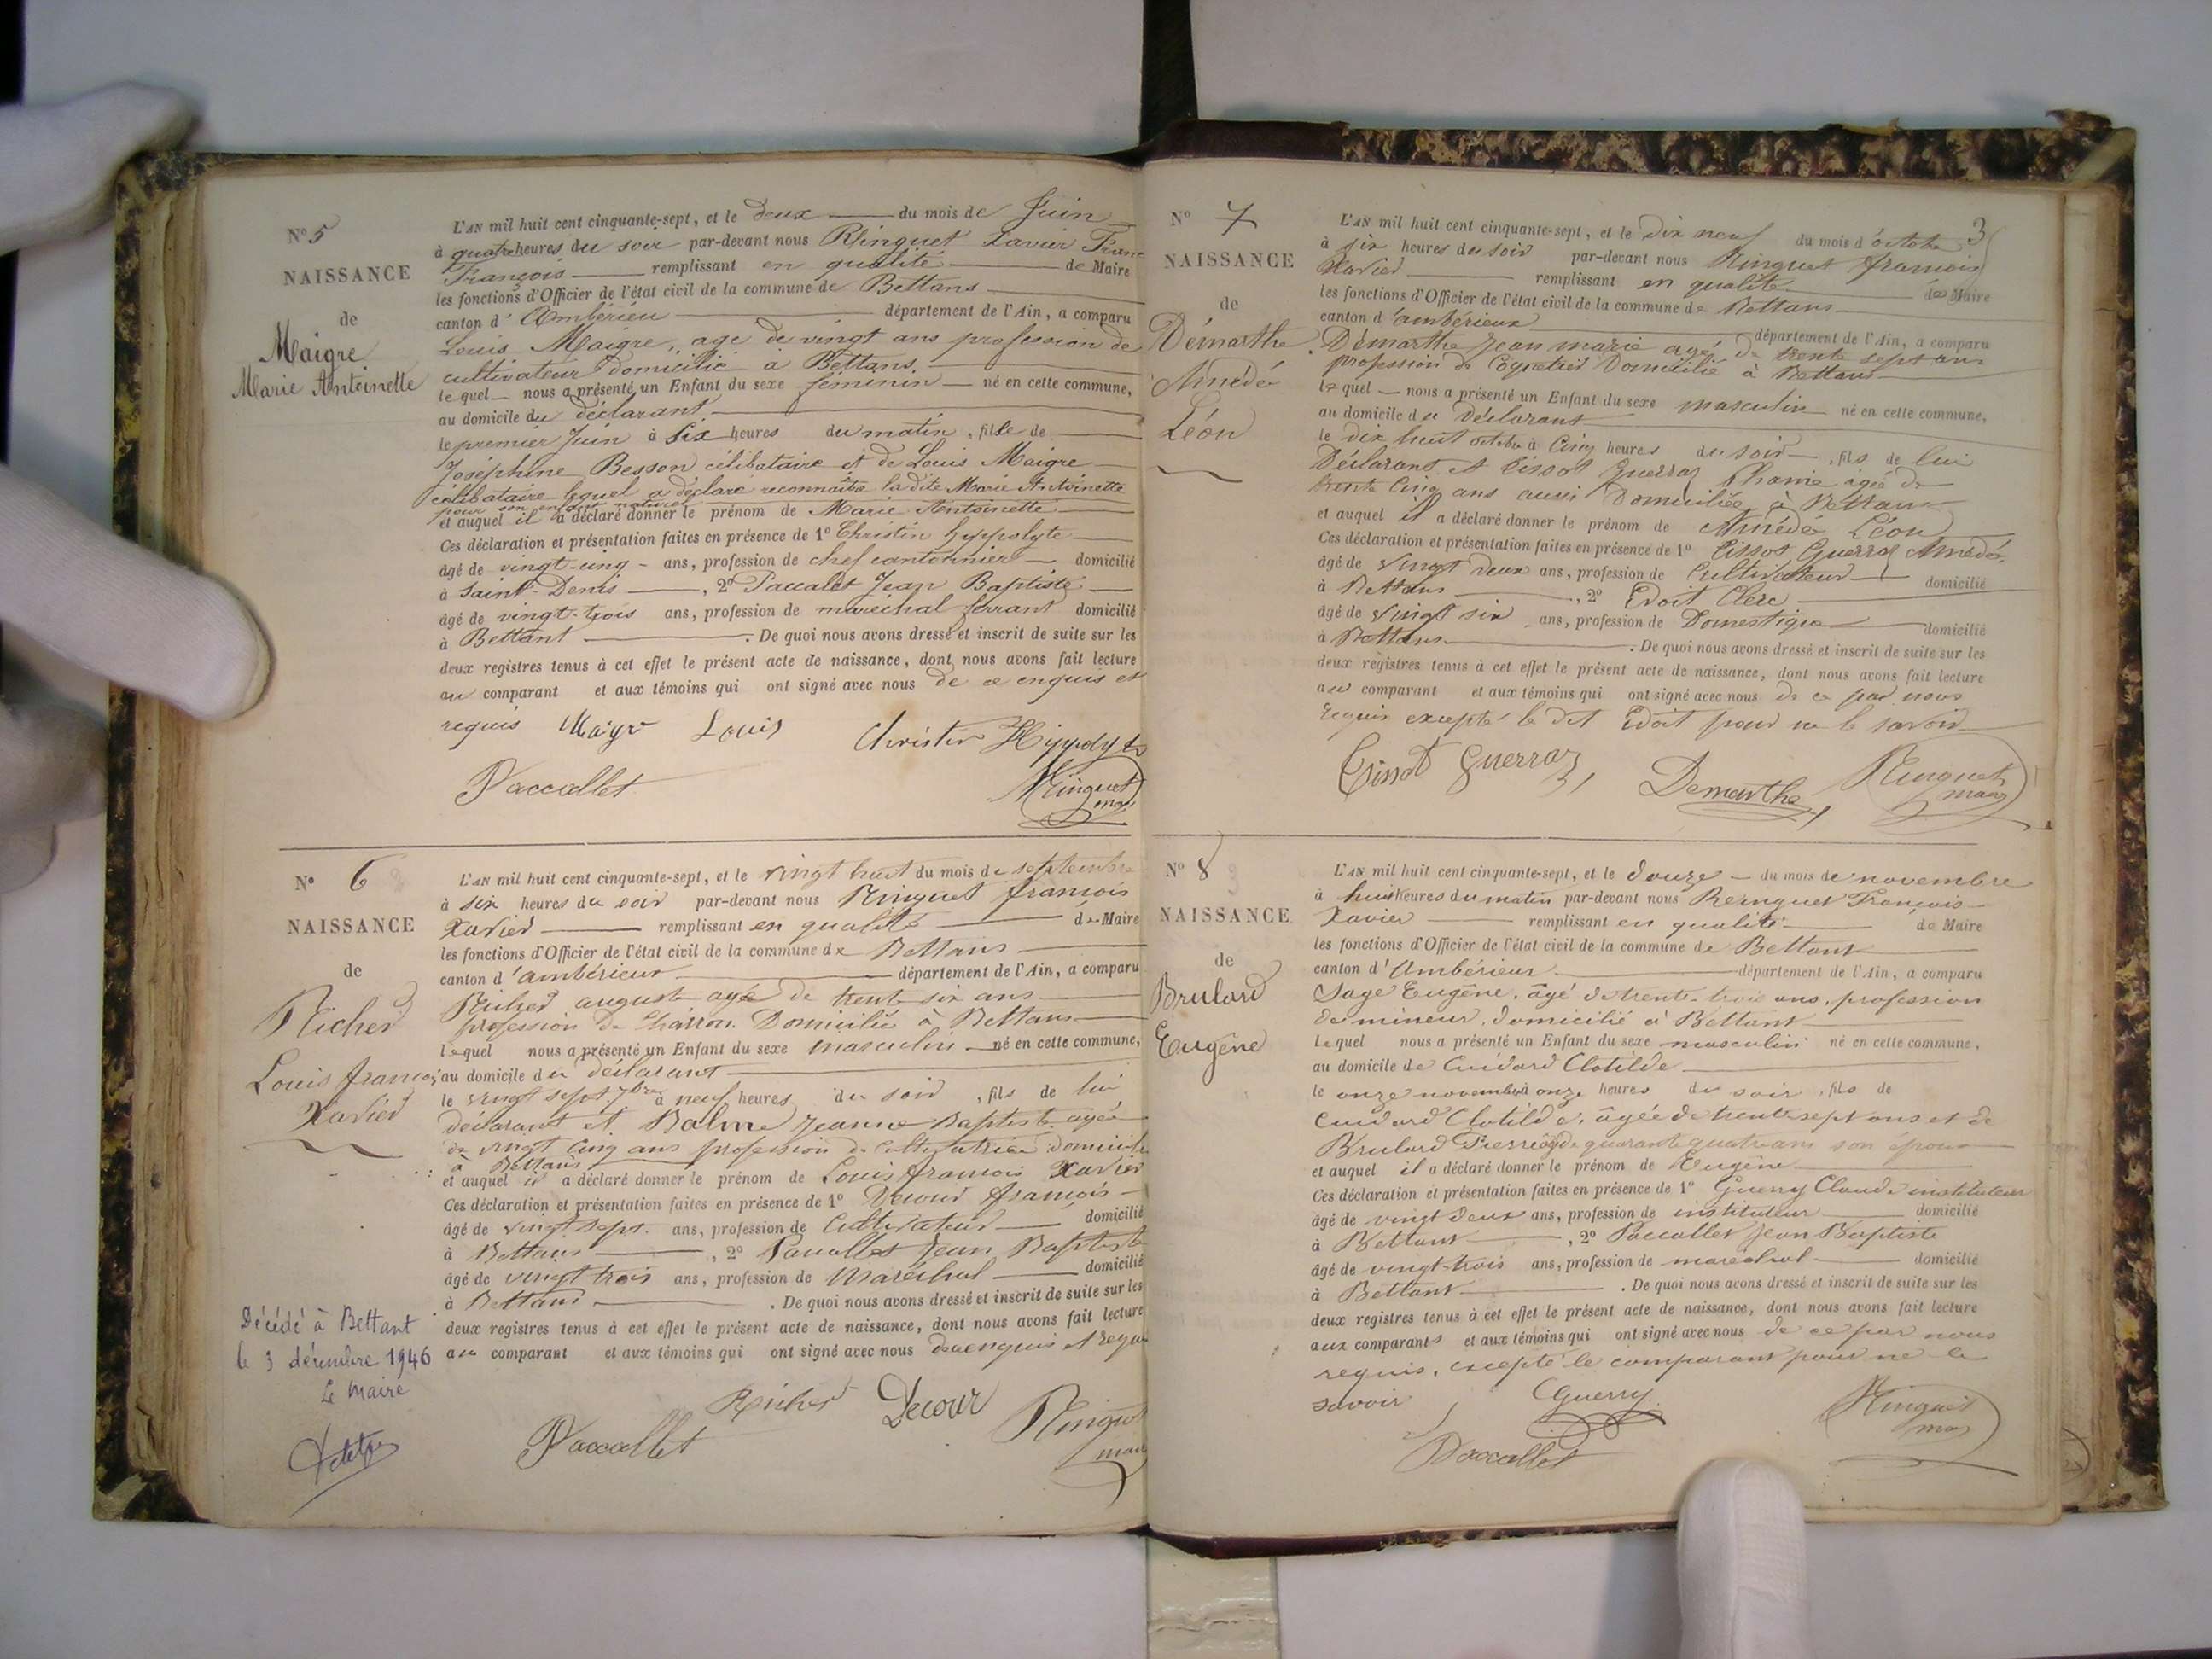 N° 5
NAISSANCE
de
Maigre
Marie Antoinette
L'AN mil huit cent cinquante-sept, et le deux du mois de Juin
à quatre heures du soir par-devant nous Rinquet Xavier
François remplissant en qualité de Maire
les fonctions d'Officier de l'état civil de la commune de Bettans
canton d'Ambérieu département de l'Ain, a comparu
Louis Maigre, age de vingt ans profession de
cultivateur domicilié a Bettans.
lequel nous a présenté un Enfant du sexe féminin né en cette commune,
au domicile du déclarant
le premier Juin à six heures du matin, fille de
Joséphine Besson célibataire et de Louis Maigre
célibataire lequel a déclaré reconnaitre la dite Marie Antoinette
pour son enfant naturel
et auquel il a déclaré donner le prénom de Marie Antoinette
Ces déclaration et présentation faites en présence de 1° Christin Hyppolyte
âgé de vingt-cinq ans, profession de chef cantonnier domicilié
à Saint-Denis, 2° Paccalet Jean Baptiste
âgé de vingt-trois ans, profession de maréchal ferrant domicilié
à Bettant. De quoi nous avons dressé et inscrit de suite sur les
deux registres tenus à cet effet le présent acte de naissance, dont nous avons fait lecture
au comparant et aux témoins qui ont signé avec nous de ce enquis et
requis Maigre Louis Christin Hippolyte
Paccallet Rinquet
N° 6
NAISSANCE
de
Richer
Louis françois
Xavier
L'AN mil huit cent cinquante-sept, et le vingt huit du mois de septembre
à six heures du soir par-devant nous Rinquet francois
Xavier remplissant en qualité de Maire
les fonctions d'Officier de l'état civil de la commune de Bettans
canton d'ambérieux département de l'Ain, a comparu
Richer auguste agé de trente six ans
profession de Charron Domicilié à Bettans
lequel nous a présenté un Enfant du sexe masculin né en cette commune,
au domicile du déclarant
le vingt sept 7bre à neuf heures du soir, fils de lui
déclarant et Balme Jeanne Baptiste agée
de vingt cinq ans profession de Cultivatrice domiciliée
a Bettans
et auquel il a déclaré donner le prénom de Louis francois Xavier
Ces déclaration et présentation faites en présence de 1° Decour françois
âgé de vingt sept ans, profession de Cultivateur domicilié
à Bettans, 2° Pacallet Jean Baptiste
âgé de vingt trois ans, profession de Maréchal domicilié
à Bettans. De quoi nous avons dressé et inscrit de suite sur les
deux registres tenus à cet effet le présent acte de naissance, dont nous avons fait lecture
au comparant et aux témoins qui ont signé avec nous de ce enquis et requis
Richer Decour Rinquet
Paccallet
Décédé à Bettant
le 3 décembre 1946
Le Maire
3
N° 7
NAISSANCE
de
Démarthe
Amédé
Léon
L'AN mil huit cent cinquante-sept, et le dix neuf du mois d'octobre
à six heures du soir par-devant nous Rinquet francois
Xavier remplissant en qualité de Maire
les fonctions d'Officier de l'état civil de la commune de Bettans
canton d'ambérieux département de l'Ain, a comparu
Démarthe Jean marie agé de trente sept ans
profession de Domicilié à Bettans
lequel nous a présenté un Enfant du sexe masculin né en cette commune,
au domicile du Déclarant
le dix huit octobre à Cinq heures du soir, fils de lui
Déclarant et Tissot Guerraz Phanie agée de
trente Cinq ans aussi Domiciliée à Bettans
et auquel il a déclaré donner le prénom de Amédé Léon
Ces déclaration et présentation faites en présence de 1° Tissot Guerraz Amédé
âgé de vingt deux ans, profession de Cultivateur domicilié
à Bettans, 2° Edoit Clerc
âgé de vingt six ans, profession de Domestique domicilié
à Bettans. De quoi nous avons dressé et inscrit de suite sur les
deux registres tenus à cet effet le présent acte de naissance, dont nous avons fait lecture
au comparant et aux témoins qui ont signé avec nous de ce par nous
requis excepté le dit Edoit pour ne le savoir
Tissot Guerraz Demarthe Rinquet
N° 8
NAISSANCE
de
Brulard
Eugène
L'AN mil huit cent cinquante-sept, et le douze du mois de novembre
à huit heures du matin par-devant nous Reinquet François
Xavier remplissant en qualité de Maire
les fonctions d'Officier de l'état civil de la commune de Bettant
canton d'Ambérieux département de l'Ain, a comparu
Sage Eugène, âgé de trente-trois ans, profession
de mineur, domicilié à Bettant
lequel nous a présenté un Enfant du sexe masculin né en cette commune,
au domicile de Cuidard Clotilde
le onze novembre à onze heures du soir, fils de
Cuidard Clotilde, âgée de trente sept ans et de
Brulard Pierre âgé de quarante quatre ans son époux
et auquel il a déclaré donner le prénom de Eugène
Ces déclaration et présentation faites en présence de 1° Guerry Claude instituteur
âgé de vingt deux ans, profession de instituteur domicilié
à Bettant, 2° Paccallet Jean Baptiste
âgé de vingt-trois ans, profession de maréchal domicilié
à Bettant. De quoi nous avons dressé et inscrit de suite sur les
deux registres tenus à cet effet le présent acte de naissance, dont nous avons fait lecture
aux comparants et aux témoins qui ont signé avec nous de ce par nous
requis, excepté le comparant pour ne le
savoir CGuerry Rinquet
Paccallet